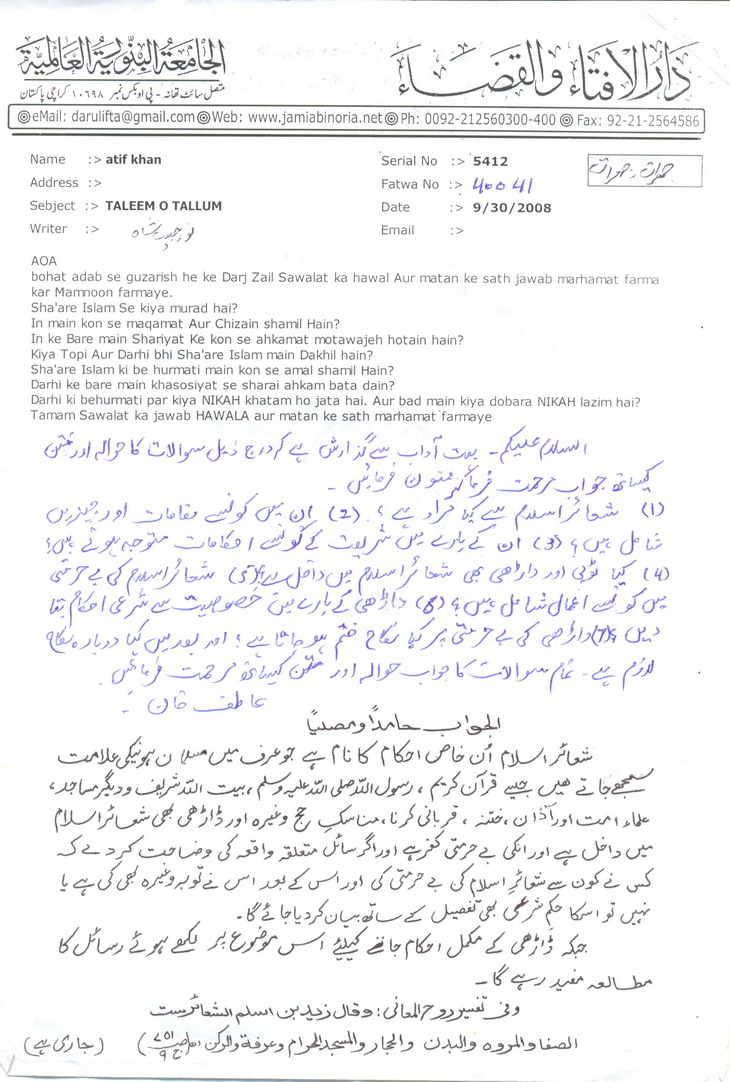 الجامعة البنورية العالمية
دار الافتاء والقضاء
متصل سائٹ تھانہ - پی او بکس نمبر ۱۰۶۹۸ کراچی پاکستان
eMail: darulifta@gmail.com Web: www.jamiabinoria.net Ph: 0092-212560300-400 Fax: 92-21-2564586
Name :> atif khan
Serial No :> 5412
Address :>
Fatwa No :> 40041
Sebject :> TALEEM O TALLUM
Date :> 9/30/2008
Writer :>
Email :>
AOA
bohat adab se guzarish he ke Darj Zail Sawalat ka hawal Aur matan ke sath jawab marhamat farma
kar Mamnoon farmaye.
Sha'are Islam Se kiya murad hai?
In main kon se maqamat Aur Chizain shamil Hain?
In ke Bare main Shariyat Ke kon se ahkamat motawajeh hotain hain?
Kiya Topi Aur Darhi bhi Sha'are Islam main Dakhil hain?
Sha'are Islam ki be hurmati main kon se amal shamil Hain?
Darhi ke bare main khasosiyat se sharai ahkam bata dain?
Darhi ki behurmati par kiya NIKAH khatam ho jata hai. Aur bad main kiya dobara NIKAH lazim hai?
Tamam Sawalat ka jawab HAWALA aur matan ke sath marhamat farmaye
السلام علیکم - بہت آداب سے گذارش ہے کہ درج ذیل سوالات کا حوالہ اور متن
کیساتھ جواب مرحمت فرما کر ممنون فرمائیں -
(1) شعائر اسلام سے کیا مراد ہے؟ (2) ان میں کونسے مقامات اور چیزیں
شامل ہیں؟ (3) ان کے بارے میں شریعت کے کونسے احکامات متوجہ ہوتے ہیں؟
(4) کیا ٹوپی اور داڑھی بھی شعائر اسلام میں داخل ہے؟ (5) شعائر اسلام کی بے حرمتی
میں کونسے اعمال شامل ہیں؟ (6) داڑھی کے بارے میں خصوصیت سے شرعی احکام بتا
دیں؟ (7) داڑھی کی بے حرمتی پر کیا نکاح ختم ہو جاتا ہے؟ اور بعد میں کیا دوبارہ نکاح
لازم ہے - تمام سوالات کا جواب حوالہ اور متن کیساتھ مرحمت فرمائیں
عاطف خان -
الجواب حامداً ومصلیاً
شعائر اسلام اُن خاص احکام کا نام ہے جو عرف میں مسلمان ہونیکی علامت
سمجھے جاتے ھیں جیسے قرآن کریم، رسول اللہ صلی اللہ علیہ وسلم، بیت اللہ شریف ودیگر مساجد،
علماء امت اور آذان، ختنہ، قربانی کرنا، مناسک حج وغیرہ اور ڈاڑھی بھی شعائر اسلام
میں داخل ہے اور انکی بے حرمتی کفر ہے اور اگر سائل متعلقہ واقعہ کی وضاحت کر دے کہ
کس نے کون سے شعائر اسلام کی بے حرمتی کی اور اس کے بعد اس نے توبہ وغیرہ بھی کی ہے یا
نہیں تو اسکا حکم شرعی بھی تفصیل کے ساتھ بیان کر دیا جائے گا -
جبکہ ڈاڑھی کے مکمل احکام جاننے کیلئے اس موضوع پر لکھے ہوئے رسائل کا
مطالعہ مفید رہے گا -
وفی تفسیر روح المعانی: وقال زید بن اسلم الشعائر ست
الصفا والمروہ والبدن والجمار والمسجد الحرام وعرفة والرکن (جاری ہے)